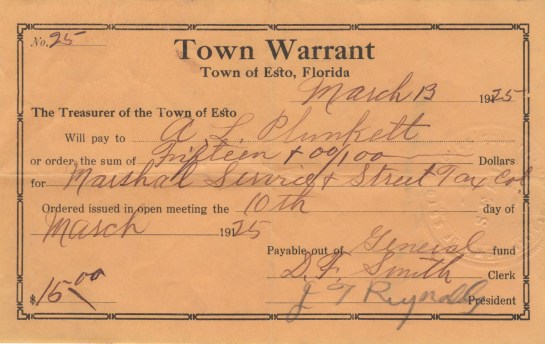 No. 25
Town Warrant
Town of Esto, Florida
March 13 1925
The Treasurer of the Town of Esto
Will pay to A. L. Plunkett
or order, the sum of Fifteen + 00/100 Dollars
for Marshal Service & Street Tax Col.
Ordered issued in open meeting the 10th day of
March 1925
Payable out of General fund
D. F. Smith Clerk
$15.00 J T Reynolds President